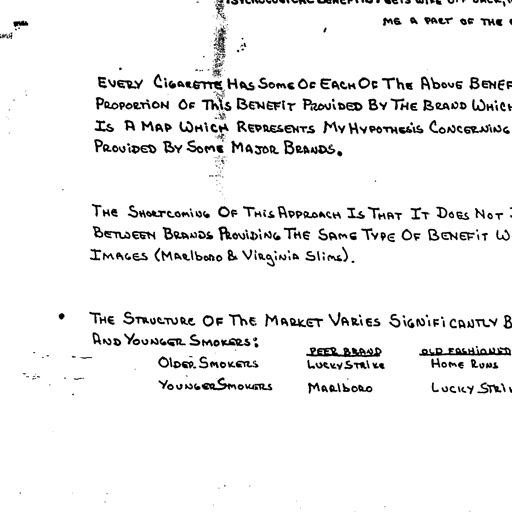 ME A PART OF THE
EVERY CIGARETTE HAS SOME OF EACH OF THE ABOVE BENEF
PROPORTION OF THIS BENEFIT PROVIDED BY THE BRAND WHICH
IS A MAP WHICH REPRESENTS MY HYPOTHESIS CONCERNING
PROVIDED BY SOME MAJOR BRANDS.
THE SHORTCOMING OF THIS APPROACH IS THAT IT DOES NOT
BETWEEN BRANDS PROVIDING THE SAME TYPE OF BENEFIT W
IMAGES (MARLBORO & VIRGINIA SLIMS).
• THE STRUCTURE OF THE MARKET VARIES SIGNIFICANTLY B
AND YOUNGER SMOKERS:
PEER BRAND OLD FASHIONED
OLDER SMOKERS LUCKY STRIKE HOME RUNS
YOUNGER SMOKERS MARLBORO LUCKY STRI